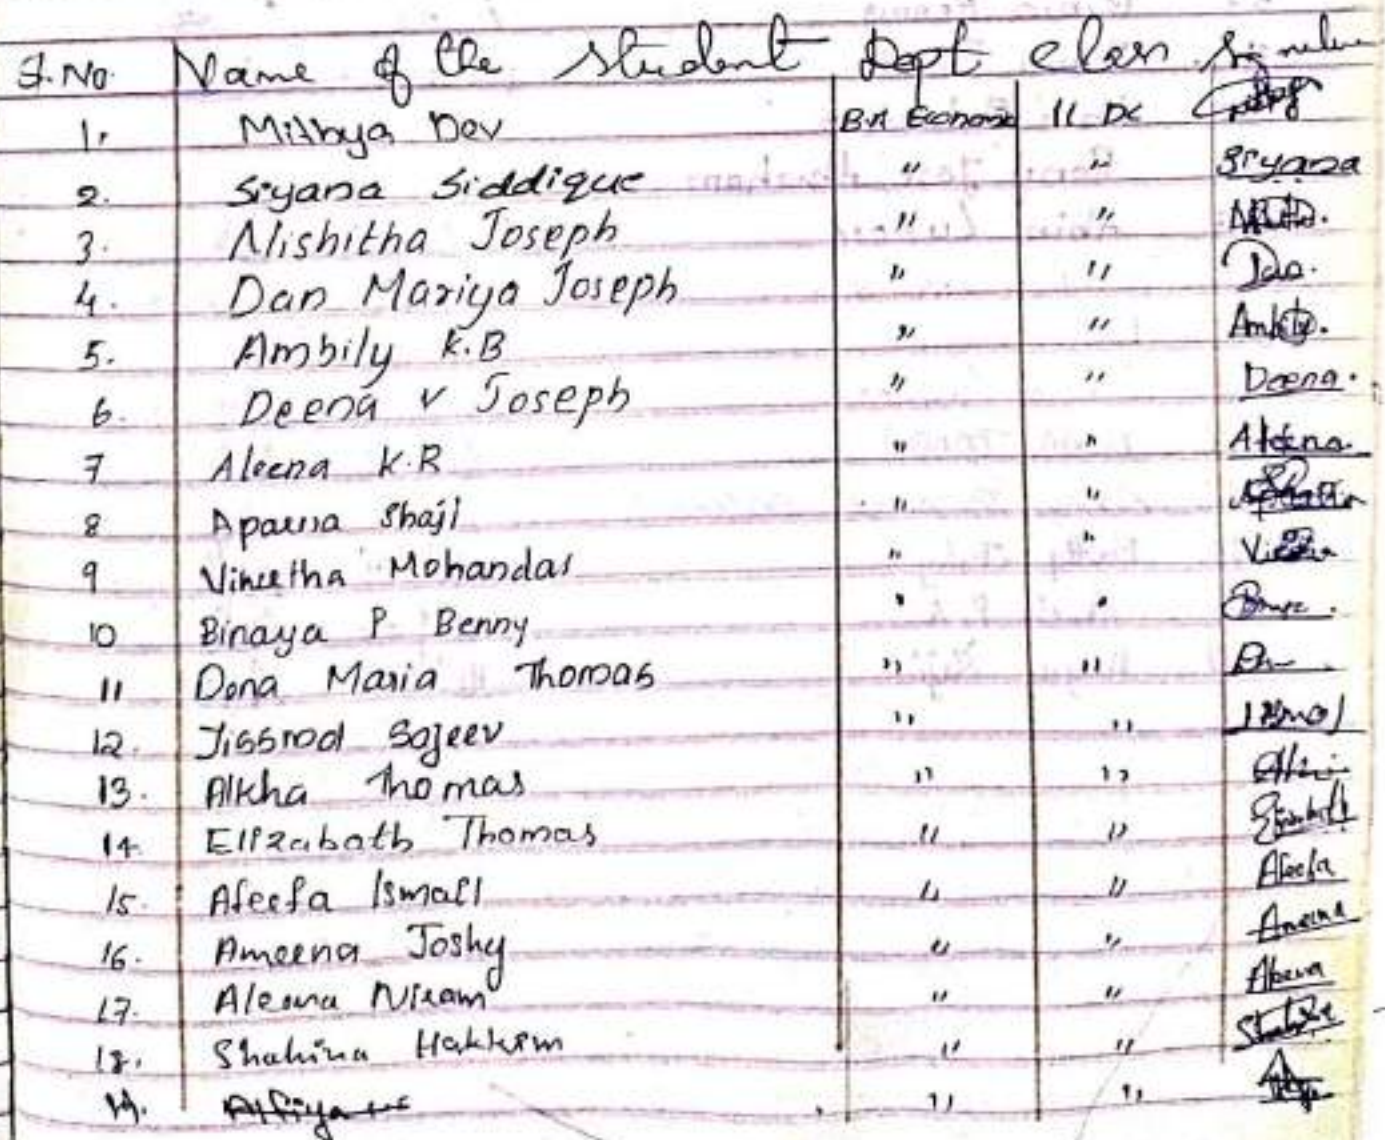 S.No. Name of the Student Dept class Signature
1. Mithya Dev B.A Economic II DC
2. Siyana Siddique " " Siyana
3. Nishitha Joseph " "
4. Dan Mariya Joseph " " Dan.
5. Ambily K.B " " Ambily.
6. Deena V Joseph " " Deena.
7 Aleena K.R " " Aleena
8 Aparna Shaji " "
9 Vineetha Mohandas " "
10 Binaya P Benny " "
11 Dona Maria Thomas " "
12. Jissmol Sajeev " " Jismol
13. Alkha Thomas " "
14. Elizabath Thomas " " Elizabath
15. Afeefa Ismail " " Afeefa
16. Ameena Joshy " " Ameena
17. Aleena Nizam " "
18. Shahina Hakkim " "
19. " "